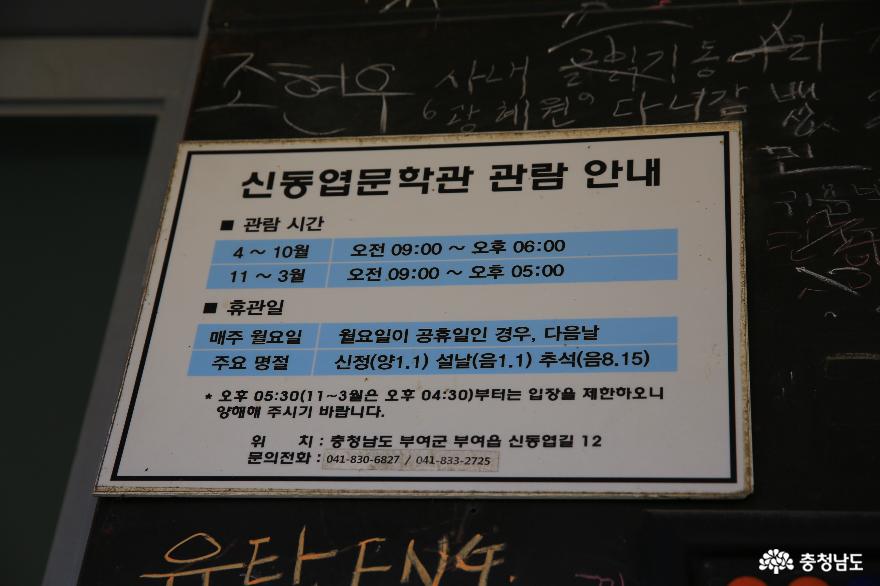 조현우 사내 동
광혜원 다녀감
신동엽문학관 관람 안내
■ 관람 시간
4 ~ 10월 오전 09:00 ~ 오후 06:00
11 ~ 3월 오전 09:00 ~ 오후 05:00
■ 휴관일
매주 월요일 월요일이 공휴일인 경우, 다음날
주요 명절 신정(양1.1) 설날(음1.1) 추석(음8.15)
* 오후 05:30(11~3월은 오후 04:30)부터는 입장을 제한하오니
양해해 주시기 바랍니다.
위 치 : 충청남도 부여군 부여읍 신동엽길 12
문의전화 : 041-830-6827 / 041-833-2725
유타 ENG.
충청남도